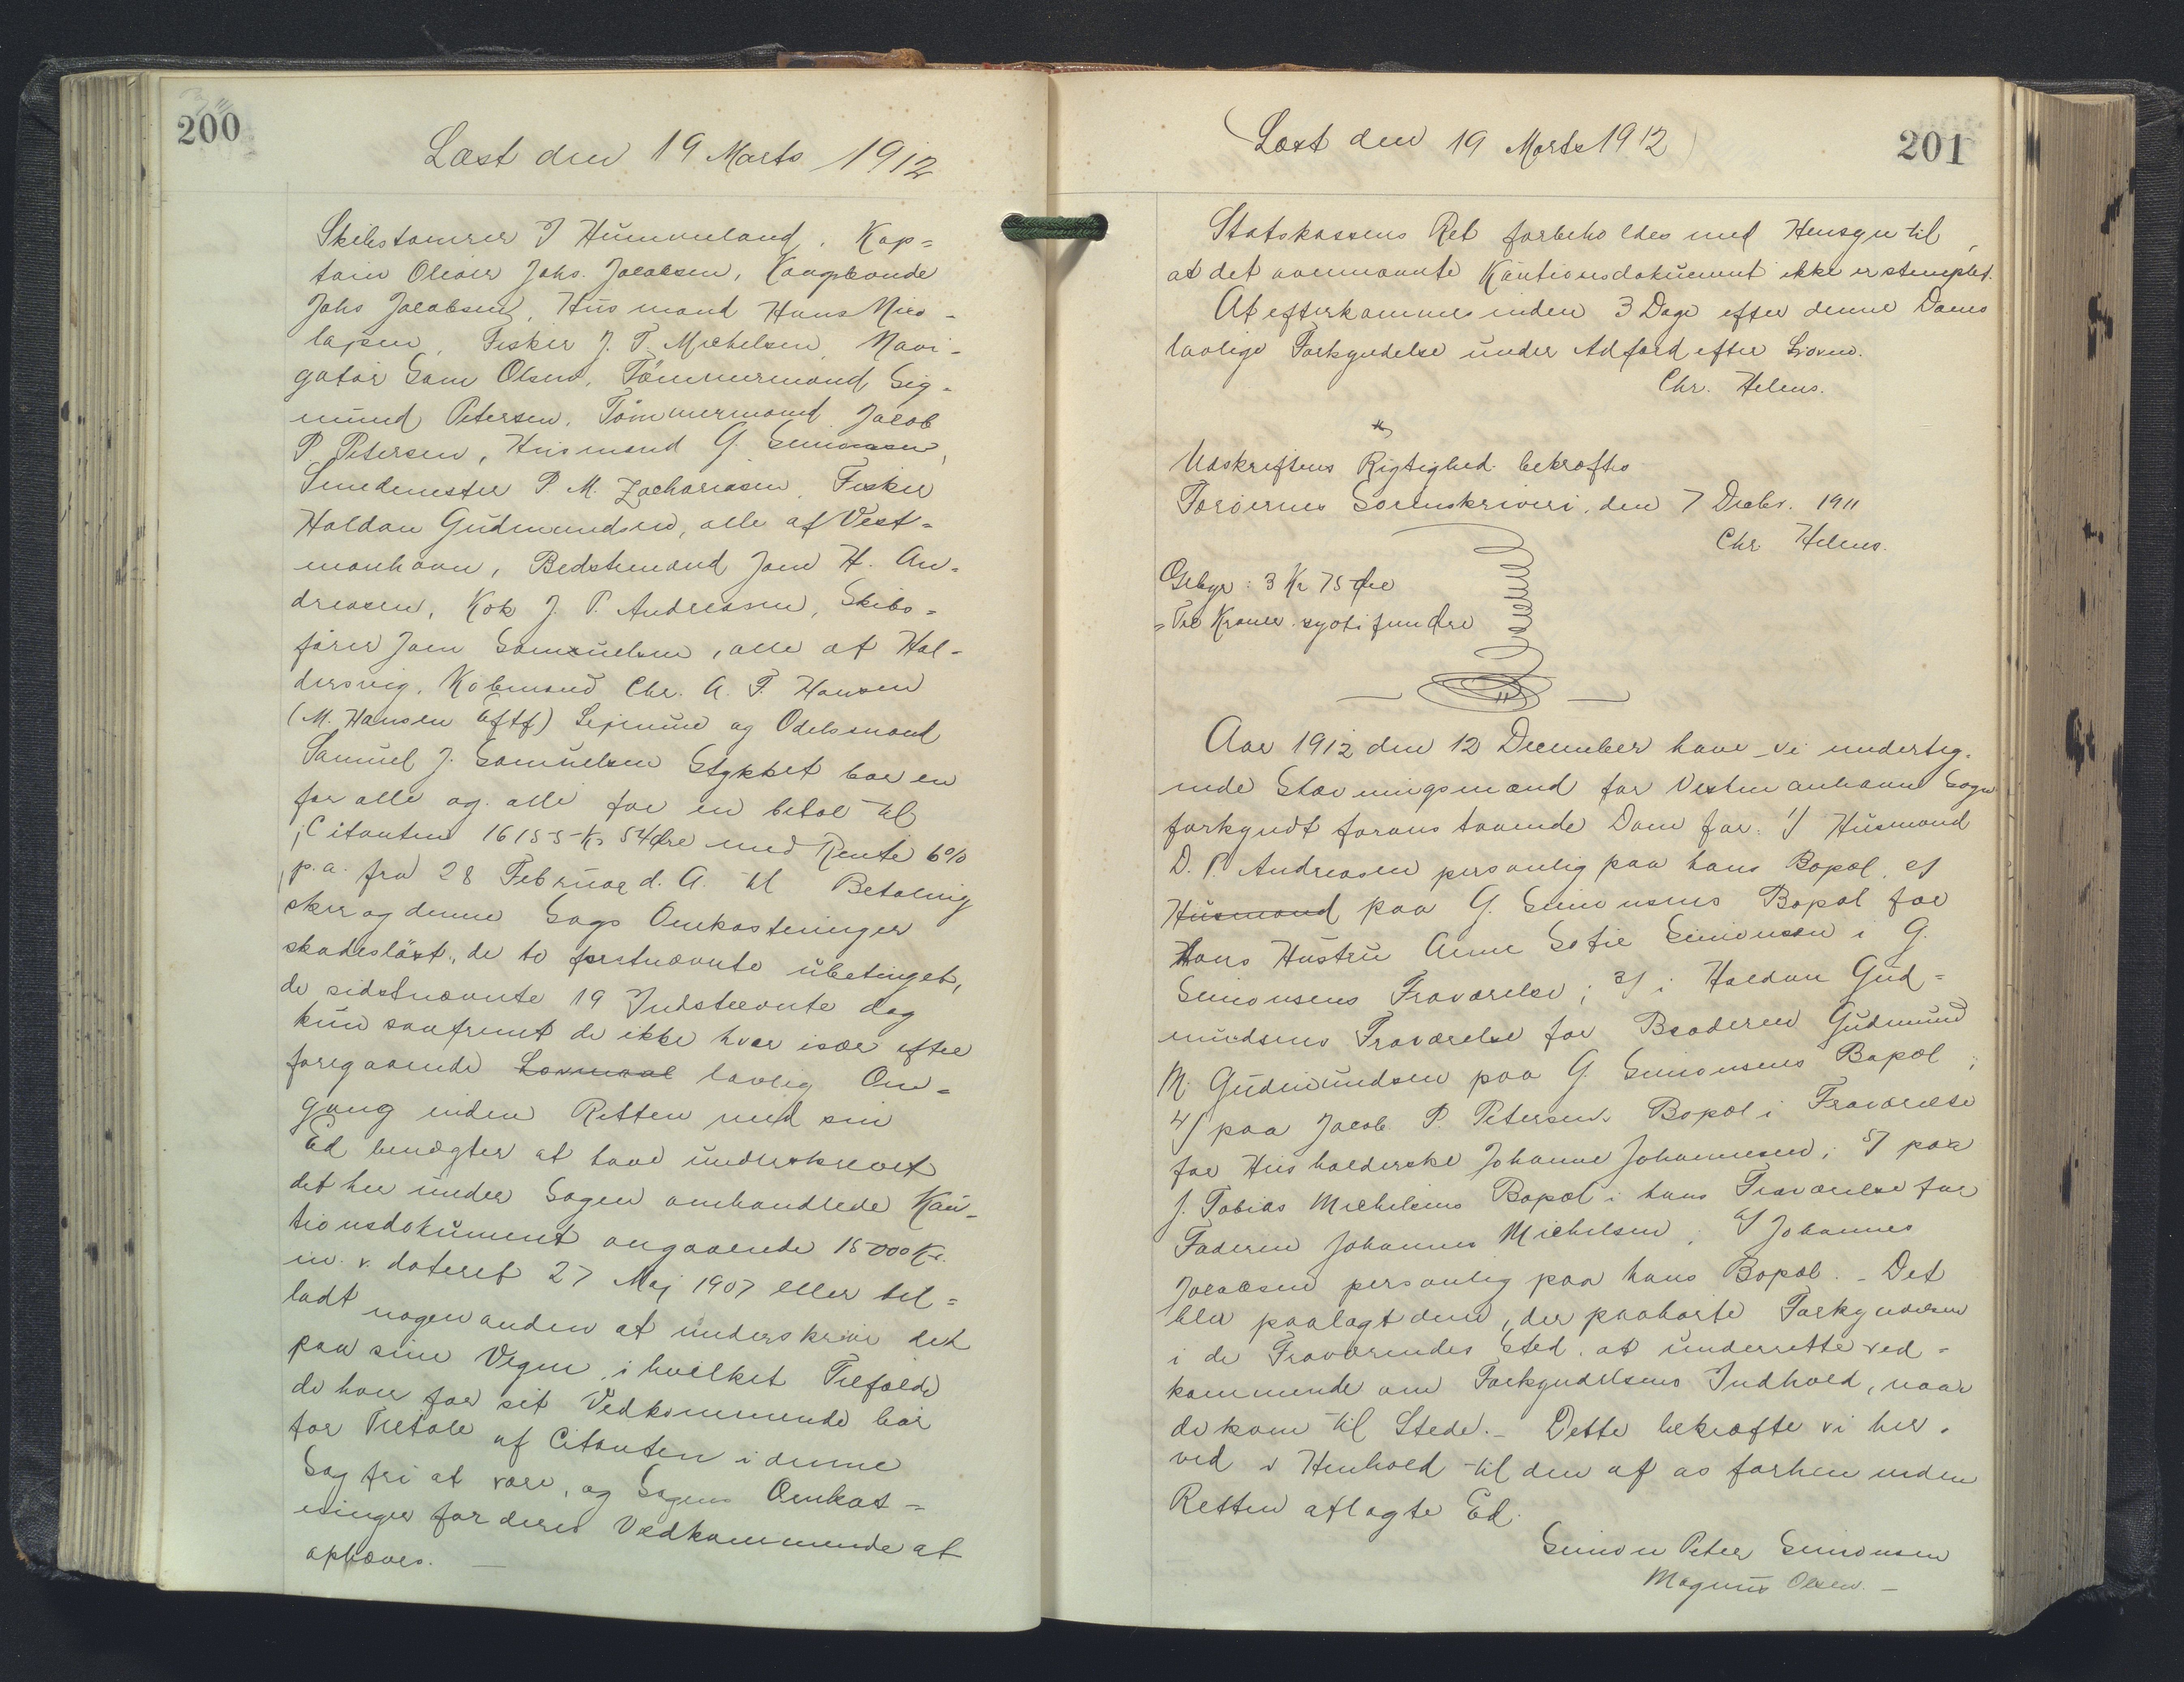 200
Læst den 19 Marts 1912
Skibstømrer J Hummeland, Kap=
tain Oliver Johs. Jacobsen, Kongsbonde
Johs Jacobsen, Husmand Hans Nico-
lajsen, Fisker J. T. Michelsen, Navi-
gatør Sam Olsen, Tømmermand Sig-
mund Petersen, Tømmermand Jacob
P. Petersen, Husmand G. Simonsen,
Smedemester P. M. Zachariasen, Fisker
Haldan Gudmundsen, alle af Vest-
manhavn, Bedstemand Joen H. An-
dreasen, Kok J. P. Andreasen, Skibs-
fører Joen Samuelsen, alle af Hal-
dersvig, Købmand Chr. A. F. Hansen
(M. Hansen Eftf) Sejerum og Odelsmand
Samuel J. Samuelsen Stykket bør en
for alle og alle for en betale til
Citanten 16155 Kr 54 Øre med Rente 6%
p.a. fra 28 Februar d. A. til Betaling
sker og denne Sags Omkostninger
skadesløst, de to førstnævnte ubetinget,
de sidstnævnte 19 Indstævnte dog
kun saafremt de ikke hver især efter
foregaaende Lovmaal lovlig Om-
gang inden Retten med sin
Ed benægter at have underskrevet
det her under Sagen omhandlede Kau-
tionsdokument angaaende 15000 Kr.
m. v. dateret 27 Maj 1907 eller til=
ladt nogen anden at underskrive det
paa sine Vegne, i hvilket Tilfælde
de hver for sit Vedkommende bør
for Tiltale af Citanten i denne
Sag fri at være, og Sagens Omkost-
ninger for deres Vedkommende at
ophæves. —
Læst den 19 Marts 1912
201
Statskassens Ret forbeholdes med Hensyn til
at det ovennævnte Kautionsdokument ikke er stemplet.
At efterkommes inden 3 Dage efter denne Doms
lovlige Forkyndelse under Adfærd efter Loven.
Chr. Helms.
Udskriftens Rigtighed bekræftes
Færøernes Sorenskriveri, den 7 Decbr. 1911
Chr. Helms.
Gebyr: 3 Kr 75 Øre
= Tre Kroner syoti fem Øre
Aar 1912 den 12 December have vi underteg-
nede Stævningsmænd for Vestmanhavn Sogn
forkyndt foranstaaende Dom for: 1/ Husmand
D. P. Andreasen personlig paa hans Bopæl, 2/
Husmand paa G. Simonsens Bopæl for
Hans Hustru Anne Sofie Simonsen i G.
Simonsens Fraværelse; 3/ i Haldan Gud-
mundsens Fraværelse for Broderen Gudmund
M. Gudmundsen paa G. Simonsens Bopæl;
4/ paa Jacob P. Petersens Bopæl i Fraværelse
for Husholderske Johanne Johannesen; 5/ paa
J. Tobias Michelsens Bopæl i hans Fraværelse for
Faderen Johannes Michelsen; 6/ Johannes
Jacobsen personlig paa hans Bopæl. - Det
blev paalagt dem, der paahørte Forkyndelsen
i de Fraværendes Sted, at underrette ved-
kommende om Forkyndelsens Indhold, naar
de kom til Stede. - Dette bekræfte vi her-
ved i Henhold til den af os forhen inden
Retten aflagte Ed.
Simon Peter Simonsen
Magnus Olsen. -